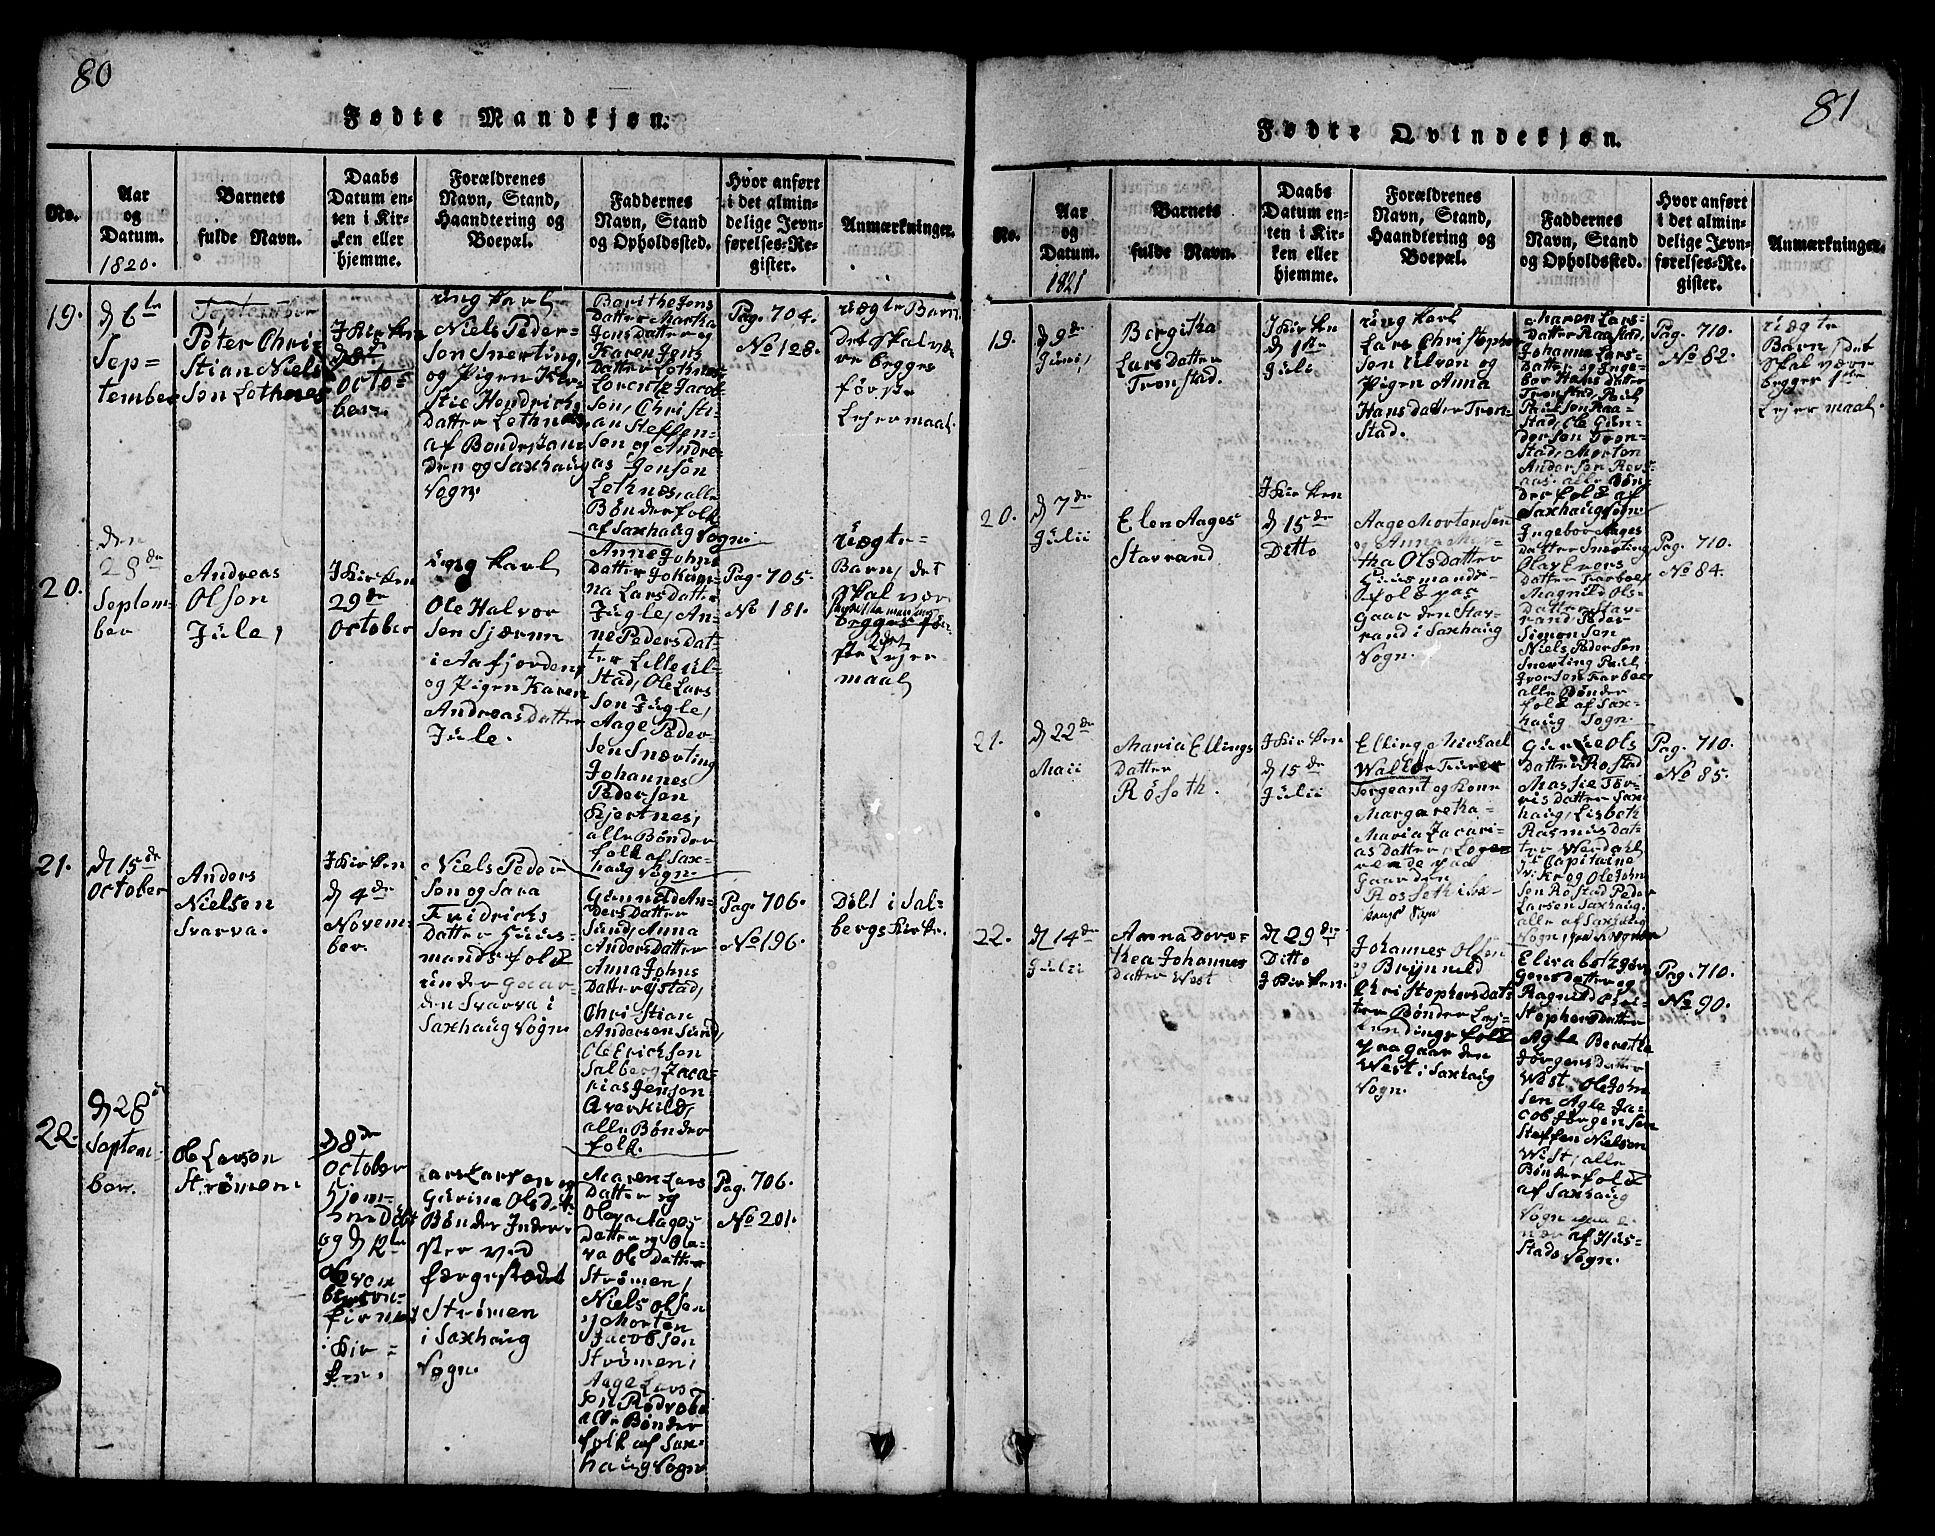 80
Fødte Mandkjøn.
No.
Aar
og
Datum.
1820.
Barnets
fulde Navn.
Daabs
Datum en-
ten i Kir-
ken eller
hjemme.
Forældrenes
Navn, Stand,
Haandtering og
Boepæl.
Faddernes
Navn, Stand
og Opholdssted.
Hvor anført
i det almin-
delige Jevn-
førelses-Re-
gister.
Anmærkninger.
19.
d 6te
Sep=
tember
September
Peter Chri-
stian Niels
Sen Lethnes
J Kirken
d 8de
Octo=
ber.
ung karl
Niels Peder-
sen Snerting,
og Pigen Kir-
stie Hendrichs
Datter Lethnes
af Bondestan-
den og Saxhaug
Sogn.
Berithe Jons
Datter Martha
Jons Datter og
Karen Jens
Datter Lethnes
Lorentz Jacob
sen, Christi-
an Steffen-
sen og Andre-
as Jonsen
Lethnes, alle
Bønderfolk
af Saxhaug Sogn.
Pag. 704.
No 128.
uægte Barn.
Det skal væ-
re begges
første
Lejermaal.
20.
den
28de
Septem-
ber
Andreas
Olsen
Jule,
J Kirken
29de
October
ung karl
Ole Halvor
sen Sjærnn
i Aafjorden,
og Pigen Karen
Andreas Datter
Jule.
Anne Johns
Datter Johan-
na Lars Datter
Jugle, An-
ne Peders Dat-
ter Lilleul-
stad, Ole Lars
sen Jugle,
Aage Peder-
sen Snærting
Johannes
Pedersen
Hjertnes,
alle Bønder
folk af Sax-
haug Sogn.
Pag. 705.
No 181.
uægte=
Barn, det
skal vær
begges før-
ste Lejer
maal
21.
d 15de
October
Anders
Nielsen
Svarva.
J Kirken
d 4de
Novem-
ber.
Niels Peder
sen og Sara
Fridrichs
Datter Huus-
mands folk
under Gaar-
den Svarva i
Saxhaug Sogn
Gunnild An-
ders Datter
Sund, Anna
Anders Datter
Anna Johns
Datter ystad,
Christian
Andersen Sund,
Ole Erichsen
Salberg, Zaca-
rias Jensen
Qverkild,
alle Bønder
folk.
Pag. 706.
No 196.
Døbt i Sal-
bergs Kirke.
22.
d 28de
Septem-
ber.
Ole Larsen
Strømen.
d 8de
October
hjem-
me Døbt
og d 12te
Novem
ber con-
firmert
i Kir-
ken.
Lars Larsen og
Gurina Ols Dat
Bønder Inder-
ster ved
færgestædet
Strømen
i Saxhaug
Sogn.
Maren Lars
Datter og
Olava Aages
Datter og Ola-
va Ols Datter
Strømen,
Niels Olsen
Morten
Jacobsen
Strømen,
Aage Lars
sen Rødvold
alle Bønder
folk af Sax-
haug Sogn
Pag. 706.
No 201.
81
Fødte Qvindekjøn.
No.
Aar
og
Datum.
1821
Barnets
fulde Navn.
Daabs
Datum en-
ten i Kir-
ken eller
hjemme.
Forældrenes
Navn, Stand,
Haandtering og
Boepæl.
Faddernes
Navn, Stand
og Opholdssted.
Hvor anført
i det almin-
delige Jevn-
førelses-Re-
gister.
Anmærkninger.
19.
d 9de
Juni,
Bergitha
Lars Datter
Tronstad.
J Kirken
d 1ste
Juli
ung karl
Lars Christopher
sen Ulven og
Pigen Anna
Hans Datter Tron-
stad.
Maren Lars-
Datter Raastad,
Johanna Lars-
Datter og Inge-
bor Hans Datter
Tronstad, Paul
Paulsen Raa-
stad, Ole Gun-
dersen Tron-
stad, Morten
Andersen Revs-
aas. alle Bøn-
der folk af
Saxhaug Sogn
Pag. 710.
No 82.
uægte
Barn, det
skal være
begges 1ste
Lejermaal.
20.
d 7de
Julii
Elen Aages
Stavrand
J Kirken
d 15de
Ditto
Aage Mortensen
og Anna Mar-
tha Ols Datter
Huusmands-
folk paa
Gaarden Stav-
rand i Saxhaug
Sogn.
Ingebor Aages
Datter Snerting
Olav Evers
Datter Karboel
Magnild Ols-
Datter Stav-
rand Peder
Simonsen
Niels Pedersen
Snerting Paul
Iversen Karboel
alle Bønder
folk af Sax-
haug Sogn.
Pag. 710.
No 84.
21.
d 22de
Maii
Maria Ellings
Datter
Røseth.
J Kirken
d 15de
Julii
Elling Michael
Walter Furer
Sergeant og Kone
Margareta-
Maria Zacari-
as Datter, Loger
ende paa
Gaarden
Rosseth i Sax-
haug Sogn
Gurue Ols
Datter Røstad
Massie Tor-
ris Datter Sax
haug, Lisbeth
Rasmus Dat-
ter Werdahl
Hr. Capitaine
Vikr og Ole John
sen Røstad Peder
Larsen Saxhaug.
alle af Saxhaug
Sogn,
Pag. 710.
No 85.
22.
d 14de
Juli
Anna Doro-
thea Johannes
Datter West
d 29de
Ditto
J Kirken.
Johannes Olsen
og Brynnild
Christophers Dat-
ter Bønder Lej-
lændings folk
paa Gaarden
West i Saxhaug
Sogn.
Elisabeth Jør-
gens Datter og
Ragnild Chri-
stophers Datter
Agle Berethe
Jørgens Datter
West, Ole John
sen Agle Ja-
cob Jørgensen
Steffen Nielsen
Wist, alle
Bønder folk
af Saxhaug
Sogn paa e-
nær af Hus-
stads Sogn.
Pag. 710.
No 90.